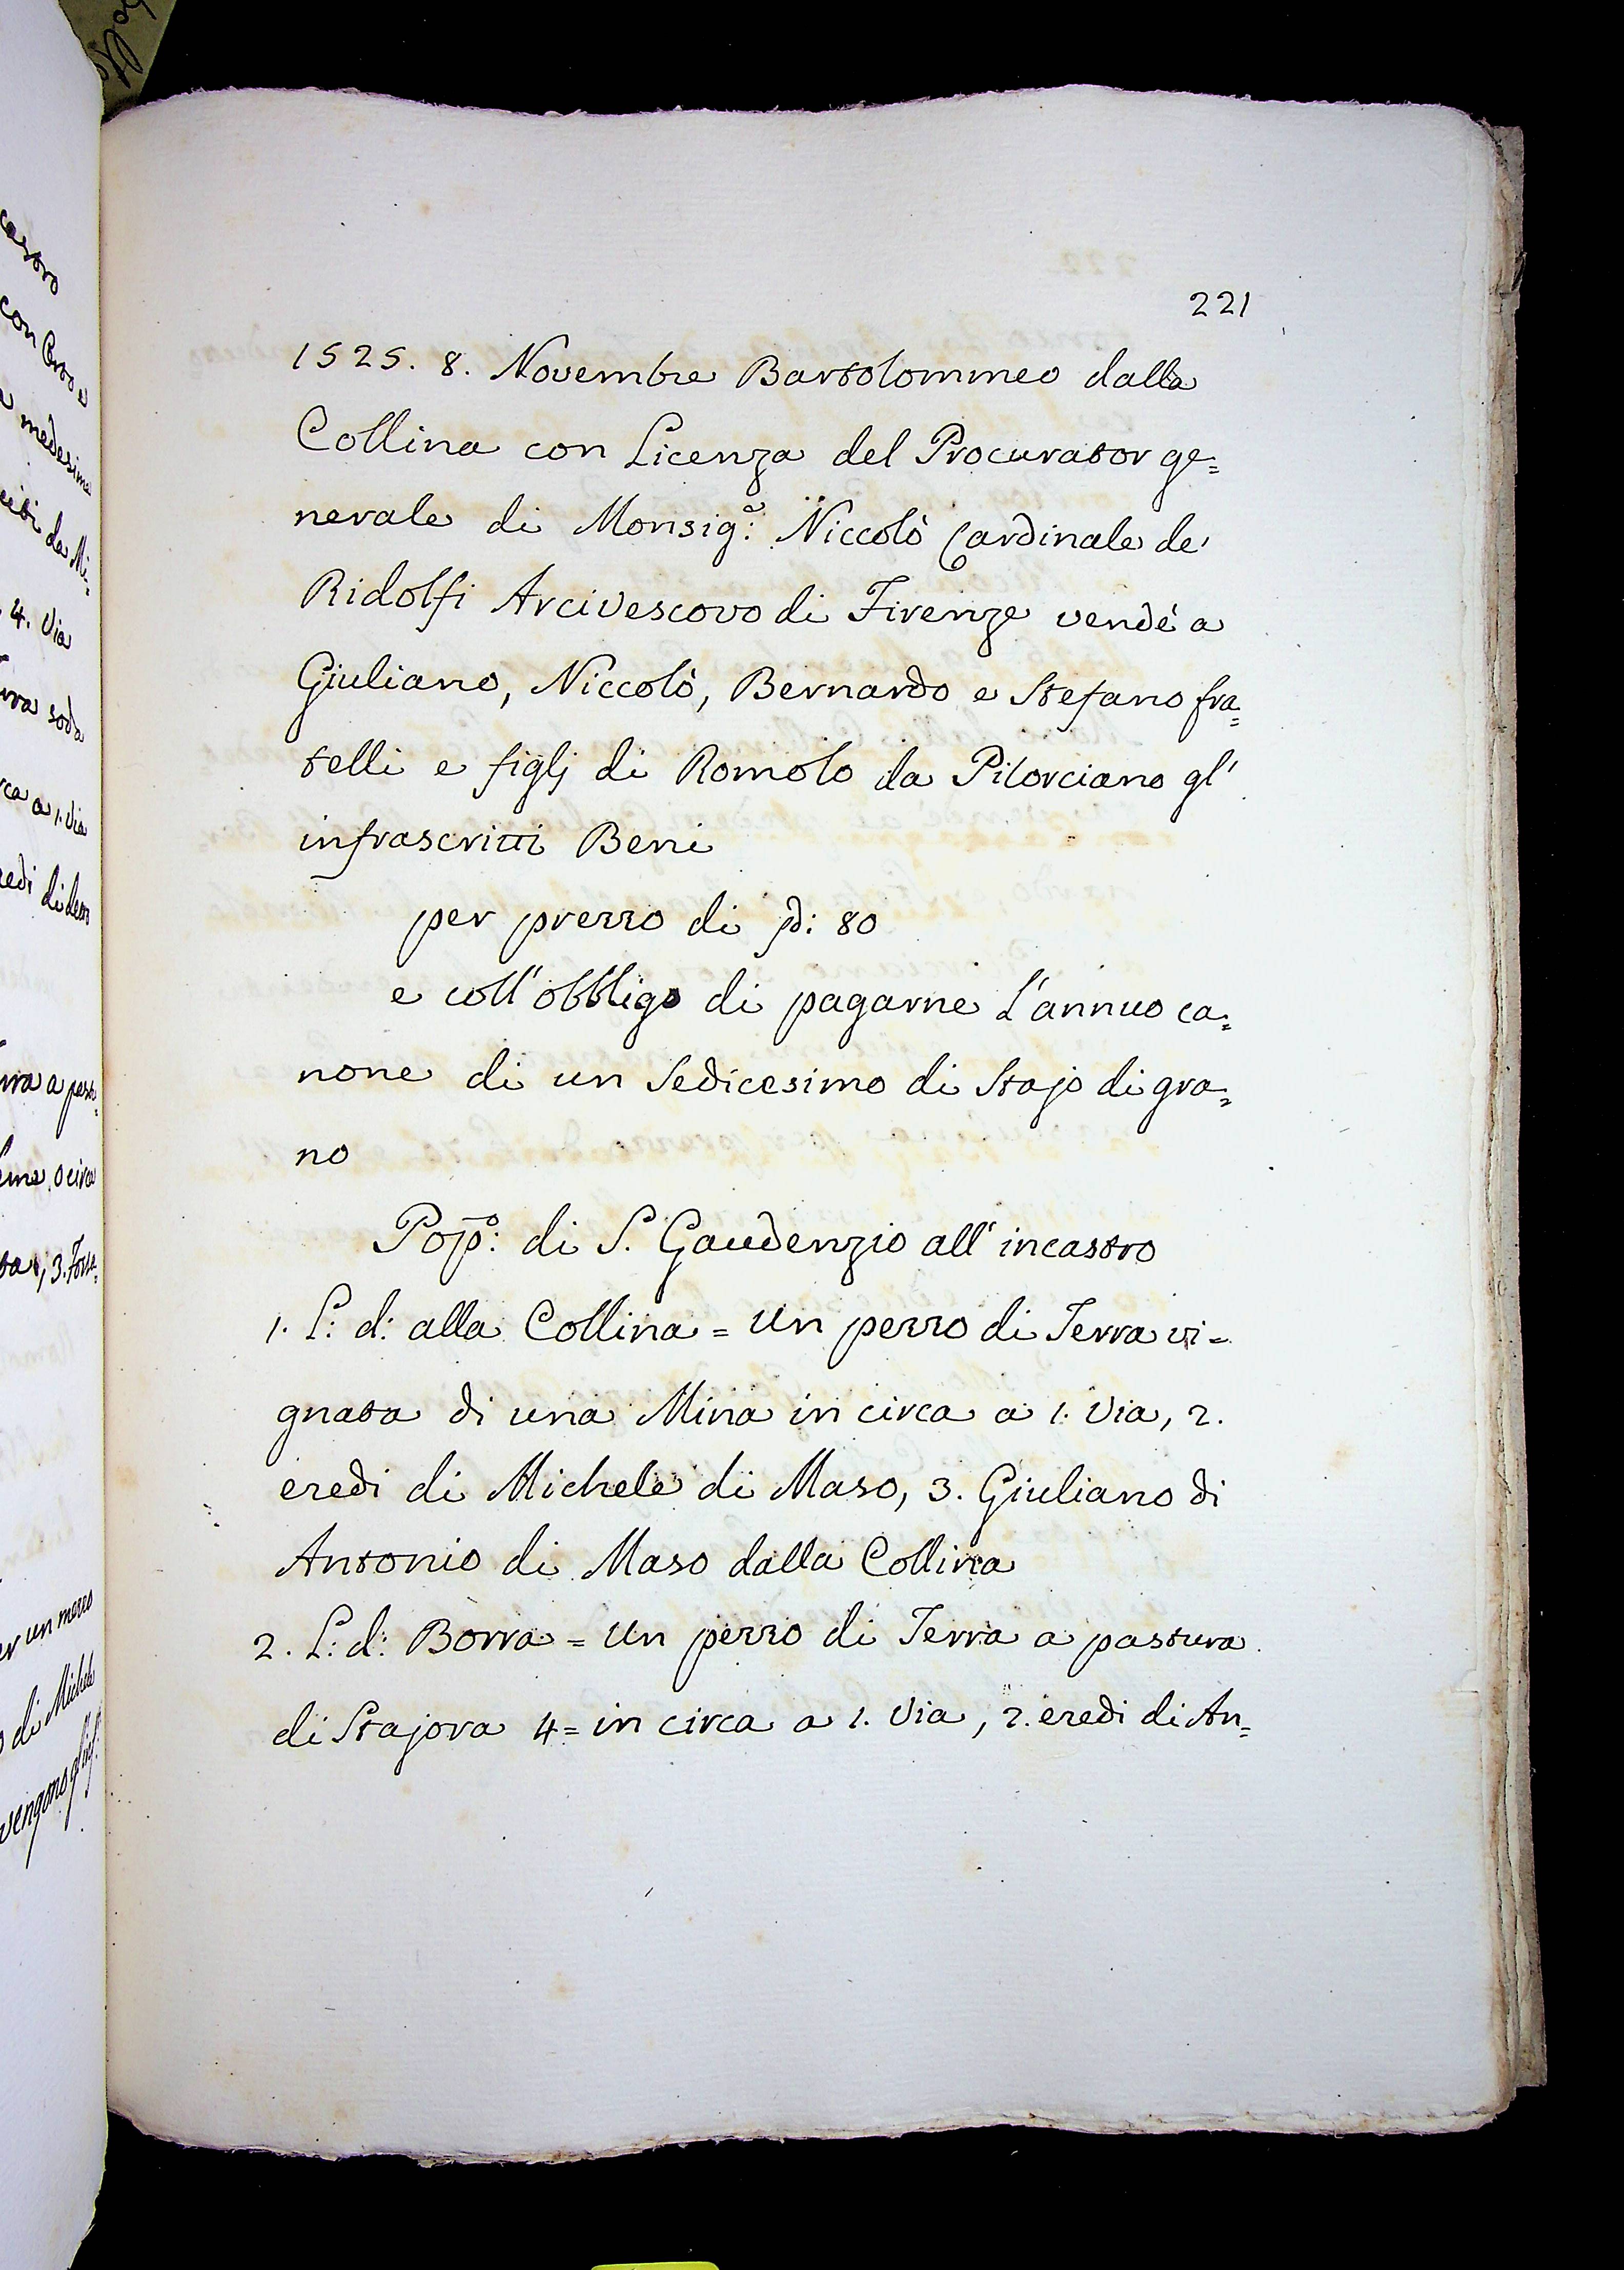 221
1525. 8. Novembre Bartolommeo dalla
Collina con Licenza del Procurator ge=
nerale di Monsig:̃ Niccolò Cardinale de'
Ridolfi Arcivescovo di Firenze vendè a
Giuliano, Niccolò, Bernardo e Stefano fra=
telli e figlj di Romolo da Pilorciano gl'
infrascritti Beni
per prezzo di 80
e coll'obbligo di pagarne l'annuo ca=
none di un Sedicesimo di Stajo di gra=
no
Pop:º di S. Gaudenzio all'incastro
1. L: d: alla Collina = Un pezzo di Terra vi=
gnata di una Mina in circa a 1. Via, 2.
eredi di Michele di Maso, 3. Giuliano di
Antonio di Maso dalla Collina
2. L: d: Borra = Un pezzo di Terra a pastura
di Stajora 4= in circa a 1. Via, 2. eredi di An=
castro
con
medesima
da Mi=
4. Via
soda
a 1. Via
eredi di
a past=
o circa
3.
er un mezzo
di Michele
vengono